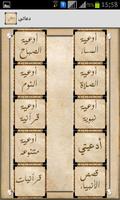 15:58
دعائي
أدعية الصباح
أدعية المساء
أدعية النوم
أدعية الصلاة
أدعية قرآنية
أدعية نبوية
أدعية متنوعة
أدعيتي
قرآنيات
قصص الأنبياء